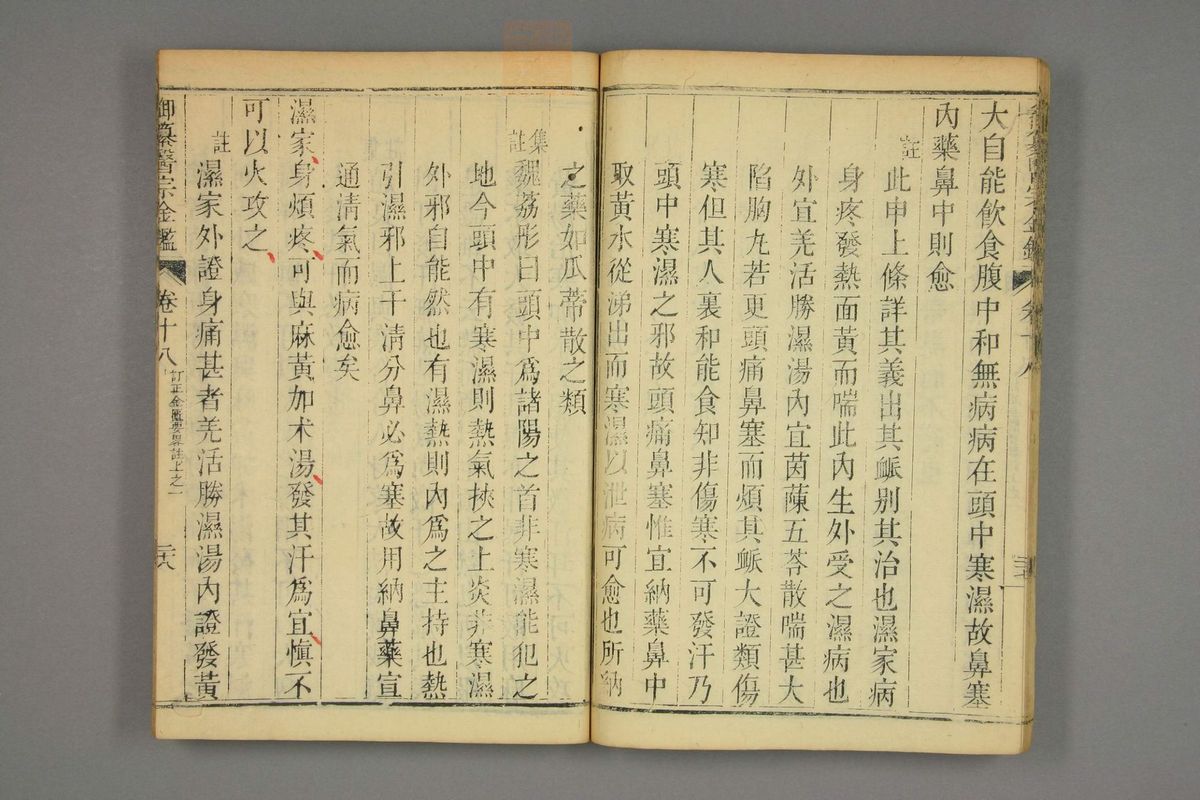 大自能飲食腹中和無病病在頭中寒濕故鼻塞
內藥鼻中則愈
註
此申上條詳其義出其䘑別其治也濕家病
身疼發熱面黃而喘此內生外受之濕病也
外宜羌活勝濕湯內宜茵蔯五苓散喘甚大
陷胸丸若更頭痛鼻塞而煩其䘑大證類傷
寒但其人裏和能食知非傷寒不可發汗乃
頭中寒濕之邪故頭痛鼻塞惟宜納藥鼻中
取黃水從涕出而寒濕以泄病可愈也所納
之藥如瓜蒂散之類
集註
魏荔彤曰頭中爲諸陽之首非寒濕能犯之
地今頭中有寒濕則熱氣挾之上炎非寒濕
外邪自能然也有濕熱則內爲之主持也熱
引濕邪上干清分鼻必爲塞故用納鼻藥宣
通清氣而病愈矣
濕家身煩疼可與麻黃加术湯發其汗爲宜慎不
可以火攻之
註
濕家外證身痛甚者羌活勝濕湯內證發黃
御纂醫宗金鑑
卷十八
訂正金匱要畧註上之一